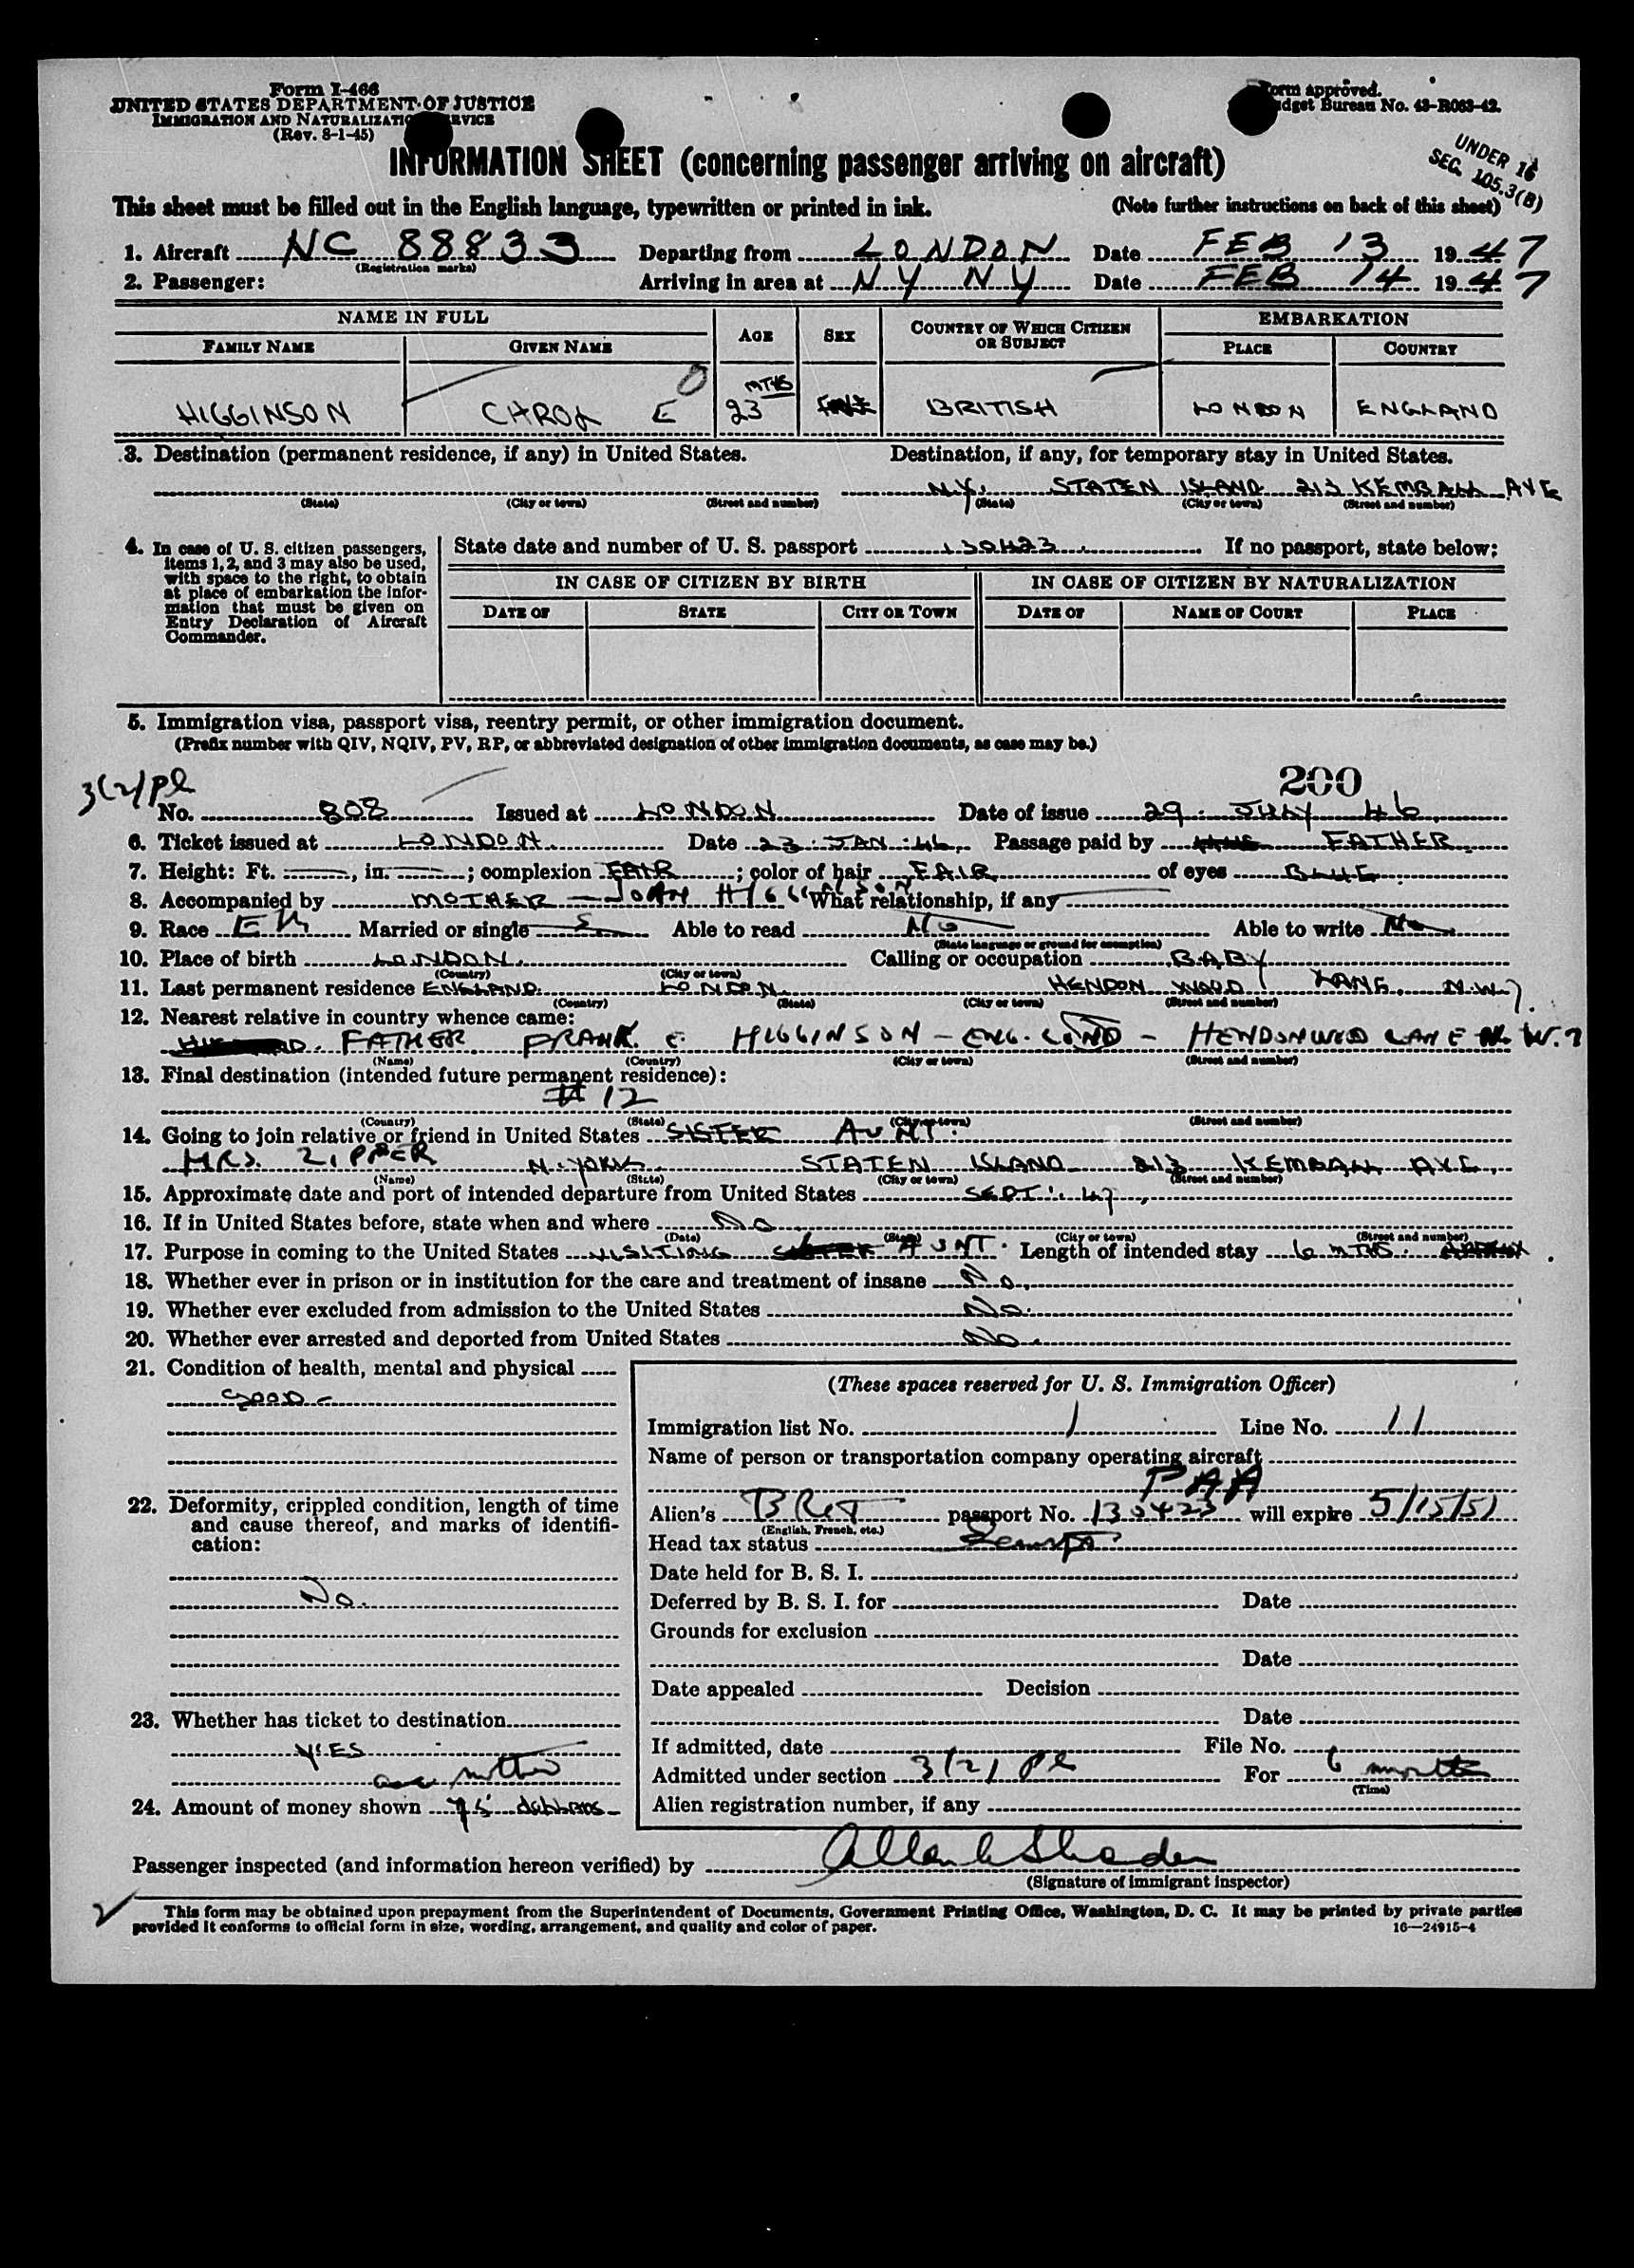 Form I-466
UNITED STATES DEPARTMENT OF JUSTICE
IMMIGRATION AND NATURALIZATION SERVICE
(Rev. 8-1-45)
Form approved.
Budget Bureau No. 43-R063-42.
UNDER 16
SEC. 105.3(B)
INFORMATION SHEET (concerning passenger arriving on aircraft)
This sheet must be filled out in the English language, typewritten or printed in ink. (Note further instructions on back of this sheet)
1. Aircraft NC 88833 Departing from LONDON Date FEB 13 1947
(Registration marks)
2. Passenger: Arriving in area at NY NY Date FEB 14 1947
NAME IN FULL AGE SEX COUNTRY OF WHICH CITIZEN OR SUBJECT EMBARKATION
FAMILY NAME GIVEN NAME PLACE COUNTRY
HIGGINSON CAROL E 23 MTHS BRITISH LONDON ENGLAND
3. Destination (permanent residence, if any) in United States. Destination, if any, for temporary stay in United States.
N.Y. STATEN ISLAND 213 KEMBALL AVE
(State) (City or town) (Street and number) (State) (City or town) (Street and number)
4. In case of U. S. citizen passengers, items 1, 2, and 3 may also be used, with space to the right, to obtain at place of embarkation the information that must be given on Entry Declaration of Aircraft Commander.
State date and number of U. S. passport 130423. If no passport, state below:
IN CASE OF CITIZEN BY BIRTH IN CASE OF CITIZEN BY NATURALIZATION
DATE OF STATE CITY OR TOWN DATE OF NAME OF COURT PLACE
5. Immigration visa, passport visa, reentry permit, or other immigration document.
(Prefix number with QIV, NQIV, PV, RP, or abbreviated designation of other immigration documents, as case may be.)
3(2) Pl 200
No. 808 Issued at LONDON Date of issue 29. JULY 46
6. Ticket issued at LONDON. Date 23. JAN. 46. Passage paid by FATHER.
7. Height: Ft. , in. ; complexion FAIR ; color of hair FAIR of eyes BLUE
8. Accompanied by MOTHER - JOAN HIGGINSON What relationship, if any
9. Race EN Married or single S Able to read NO Able to write NO
(State language or ground for exemption)
10. Place of birth LONDON. Calling or occupation BABY
(Country) (City or town)
11. Last permanent residence ENGLAND. LONDON. HENDON WOOD LANE. N.W.7.
(Country) (State) (City or town) (Street and number)
12. Nearest relative in country whence came:
FATHER FRANK E. HIGGINSON - ENG. LOND - HENDONWOOD LANE N.W.7
(Name) (Country) (City or town) (Street and number)
13. Final destination (intended future permanent residence):
# 12
(Country) (State) (City or town) (Street and number)
14. Going to join relative or friend in United States SISTER AUNT.
MRS. ZIPPER N. YORK. STATEN ISLAND 213 KEMBALL AVE.
(Name) (State) (City or town) (Street and number)
15. Approximate date and port of intended departure from United States SEPT. 47.
16. If in United States before, state when and where No.
(Date) (State) (City or town) (Street and number)
17. Purpose in coming to the United States VISITING SISTER AUNT. Length of intended stay 6 MTHS. APPROX.
18. Whether ever in prison or in institution for the care and treatment of insane No.
19. Whether ever excluded from admission to the United States No.
20. Whether ever arrested and deported from United States No.
21. Condition of health, mental and physical
GOOD -
22. Deformity, crippled condition, length of time and cause thereof, and marks of identification:
No.
23. Whether has ticket to destination
YES
mother
24. Amount of money shown 75 dollars
(These spaces reserved for U. S. Immigration Officer)
Immigration list No. 1 Line No. 11
Name of person or transportation company operating aircraft
PAA
Alien's BRIT passport No. 130423 will expire 5/15/51
(English, French, etc.)
Head tax status Exempt
Date held for B. S. I.
Deferred by B. S. I. for Date
Grounds for exclusion
Date
Date appealed Decision
Date
If admitted, date File No.
Admitted under section 3(2) Pl For 6 months
(Time)
Alien registration number, if any
Passenger inspected (and information hereon verified) by
(Signature of immigrant inspector)
This form may be obtained upon prepayment from the Superintendent of Documents, Government Printing Office, Washington, D. C. It may be printed by private parties
provided it conforms to official form in size, wording, arrangement, and quality and color of paper. 16—24915-4